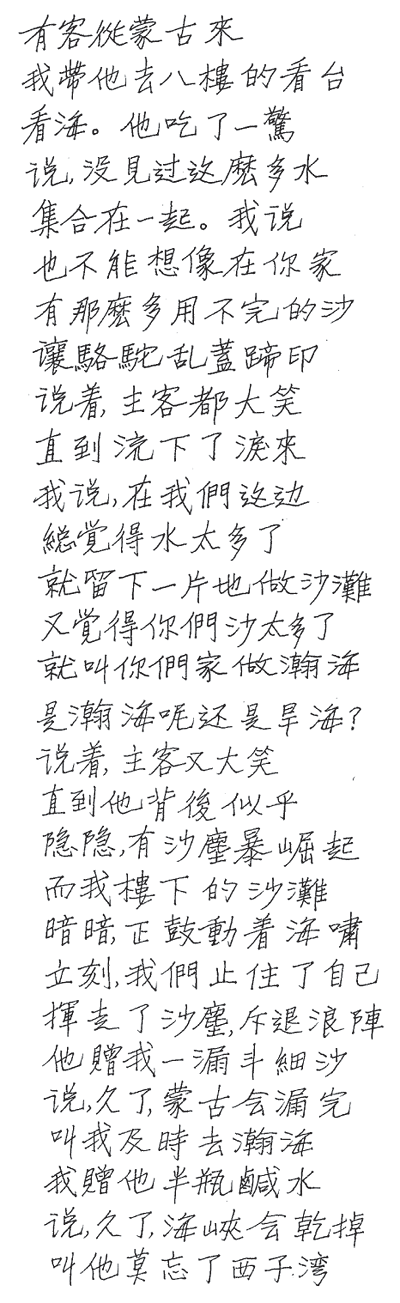 有客從蒙古來
我帶他去八樓的看台
看海。他吃了一驚
说,没見过这麽多水
集合在一起。我说
也不能想像在你家
有那麽多用不完的沙
讓駱駝乱蓋蹄印
说着,主客都大笑
直到流下了淚來
我说,在我們这边
総覺得水太多了
就留下一片地做沙灘
又覺得你們沙太多了
就叫你們家做瀚海
是瀚海呢还是旱海?
说着,主客又大笑
直到他背後似乎
隐隐,有沙塵暴崛起
而我樓下的沙灘
暗暗,正鼓動着海嘯
立刻,我們止住了自己
揮走了沙塵,斥退浪陣
他贈我一漏斗細沙
说,久了,蒙古会漏完
叫我及時去瀚海
我贈他半瓶鹹水
说,久了,海峽会乾掉
叫他莫忘了西子湾